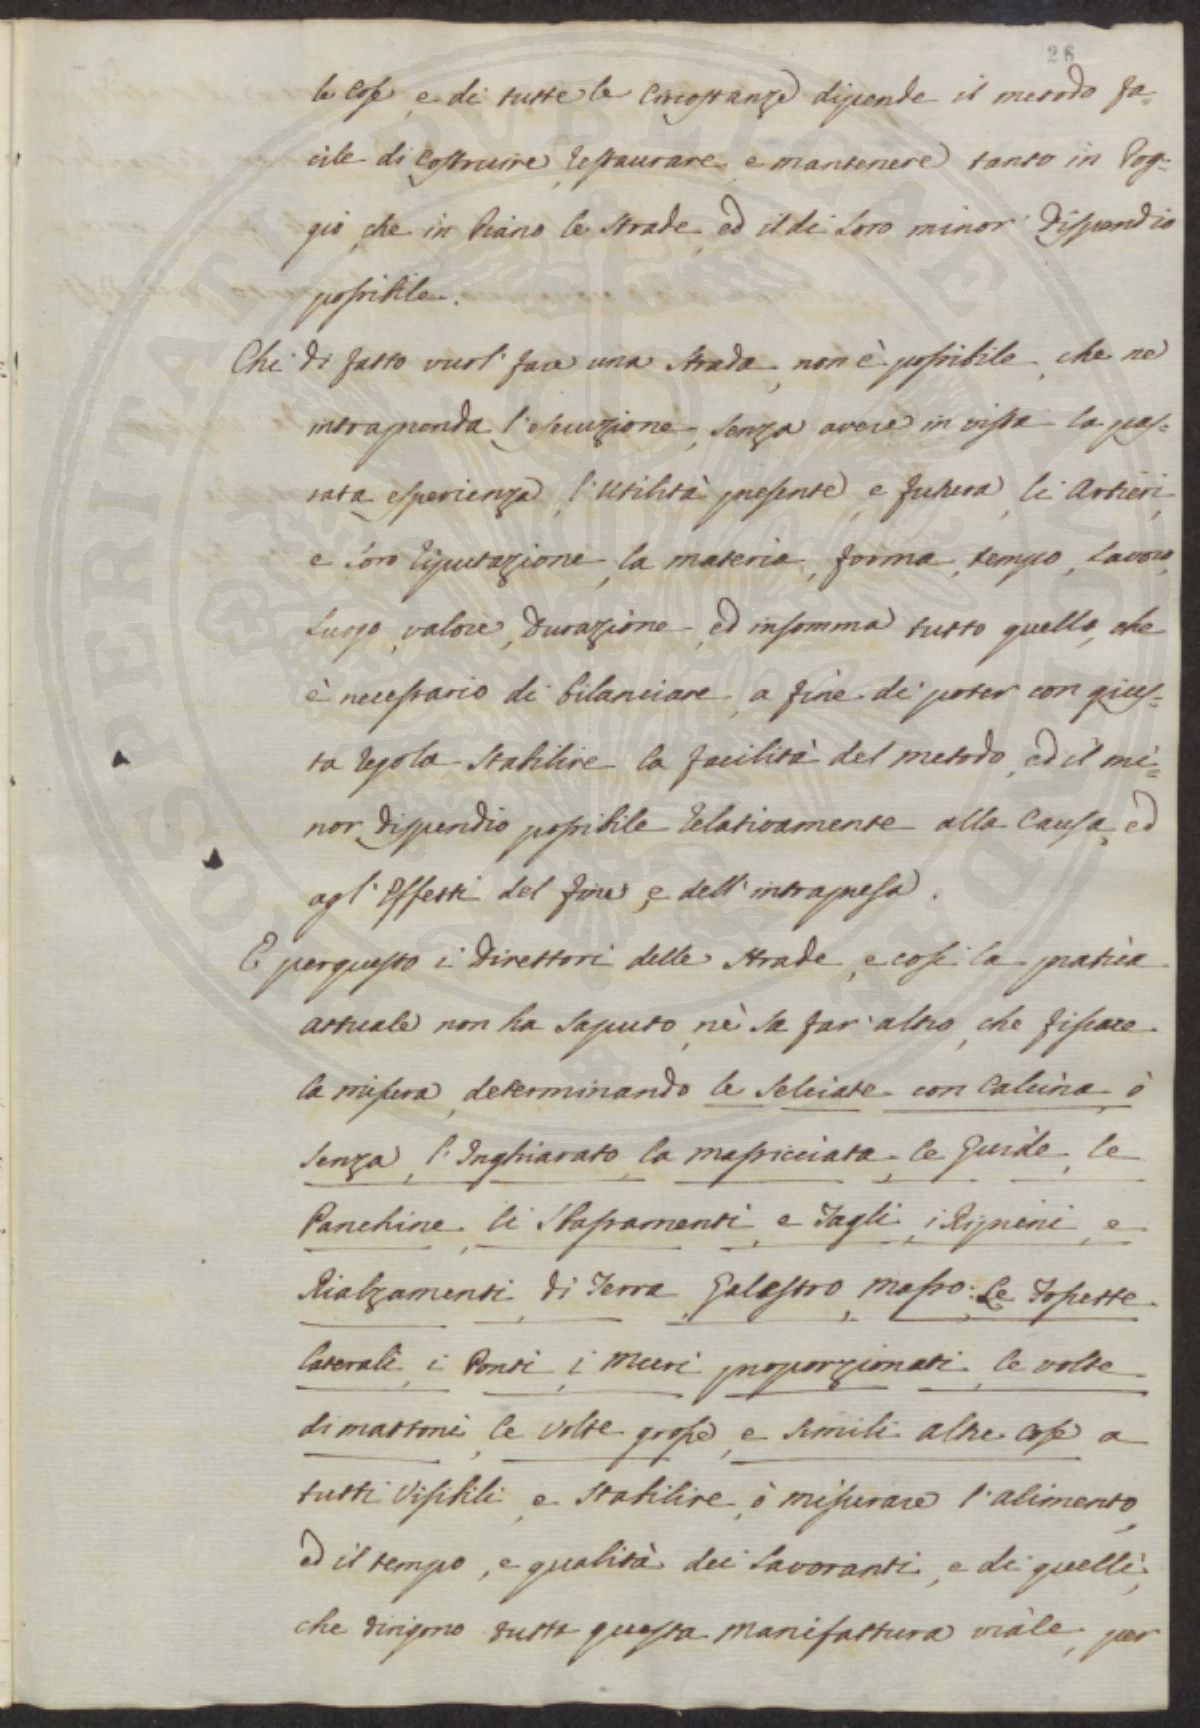 26
le Cose, e di tutte le Circostanze dipende il metodo fa-
cile di Costruire, restaurare, e mantenere tanto in Pog-
gio, che in Piano le Strade, ed il di loro minor Dispendio
possibile.
Chi di fatto vuol fare una Strada, non è possibile, che ne
intraprenda l'esecuzione, senza avere in vista la pas-
sata esperienza, l'utilità presente, e futura, li Artieri,
e loro Riputazione, la materia, forma, tempo, lavoro,
luogo, valore, Durazione, ed insomma tutto quello, che
è necessario di bilanciare, a fine di poter con gius-
ta regola Stabilire la facilità del metodo, ed il mi-
nor Dispendio possibile relativamente alla Causa, ed
agl'Effetti del fine, e dell'intrapresa.
E perquesto i Direttori delle Strade, e così la pratica
attuale non ha saputo, nè sa far altro, che fissare
la misura, determinando le Selciate con Calcina, ò
senza, l'Inghiarato, la massicciata, le Guide, le
Panchine, li Sbassamenti, e Tagli, i Ripieni, e
Rialzamenti, di Terra, Galestro, Masso: Le Fossette
laterali, i Ponti, i Muri proporzionati, le volte
di mattoni, le volte grosse, e simili altre Cose a
tutti Visibili, e Stabilire, ò misurare l'alimento,
ed il tempo, e qualità dei Lavoranti, e di quelli,
che dirigono tutta questa manifattura viale, per